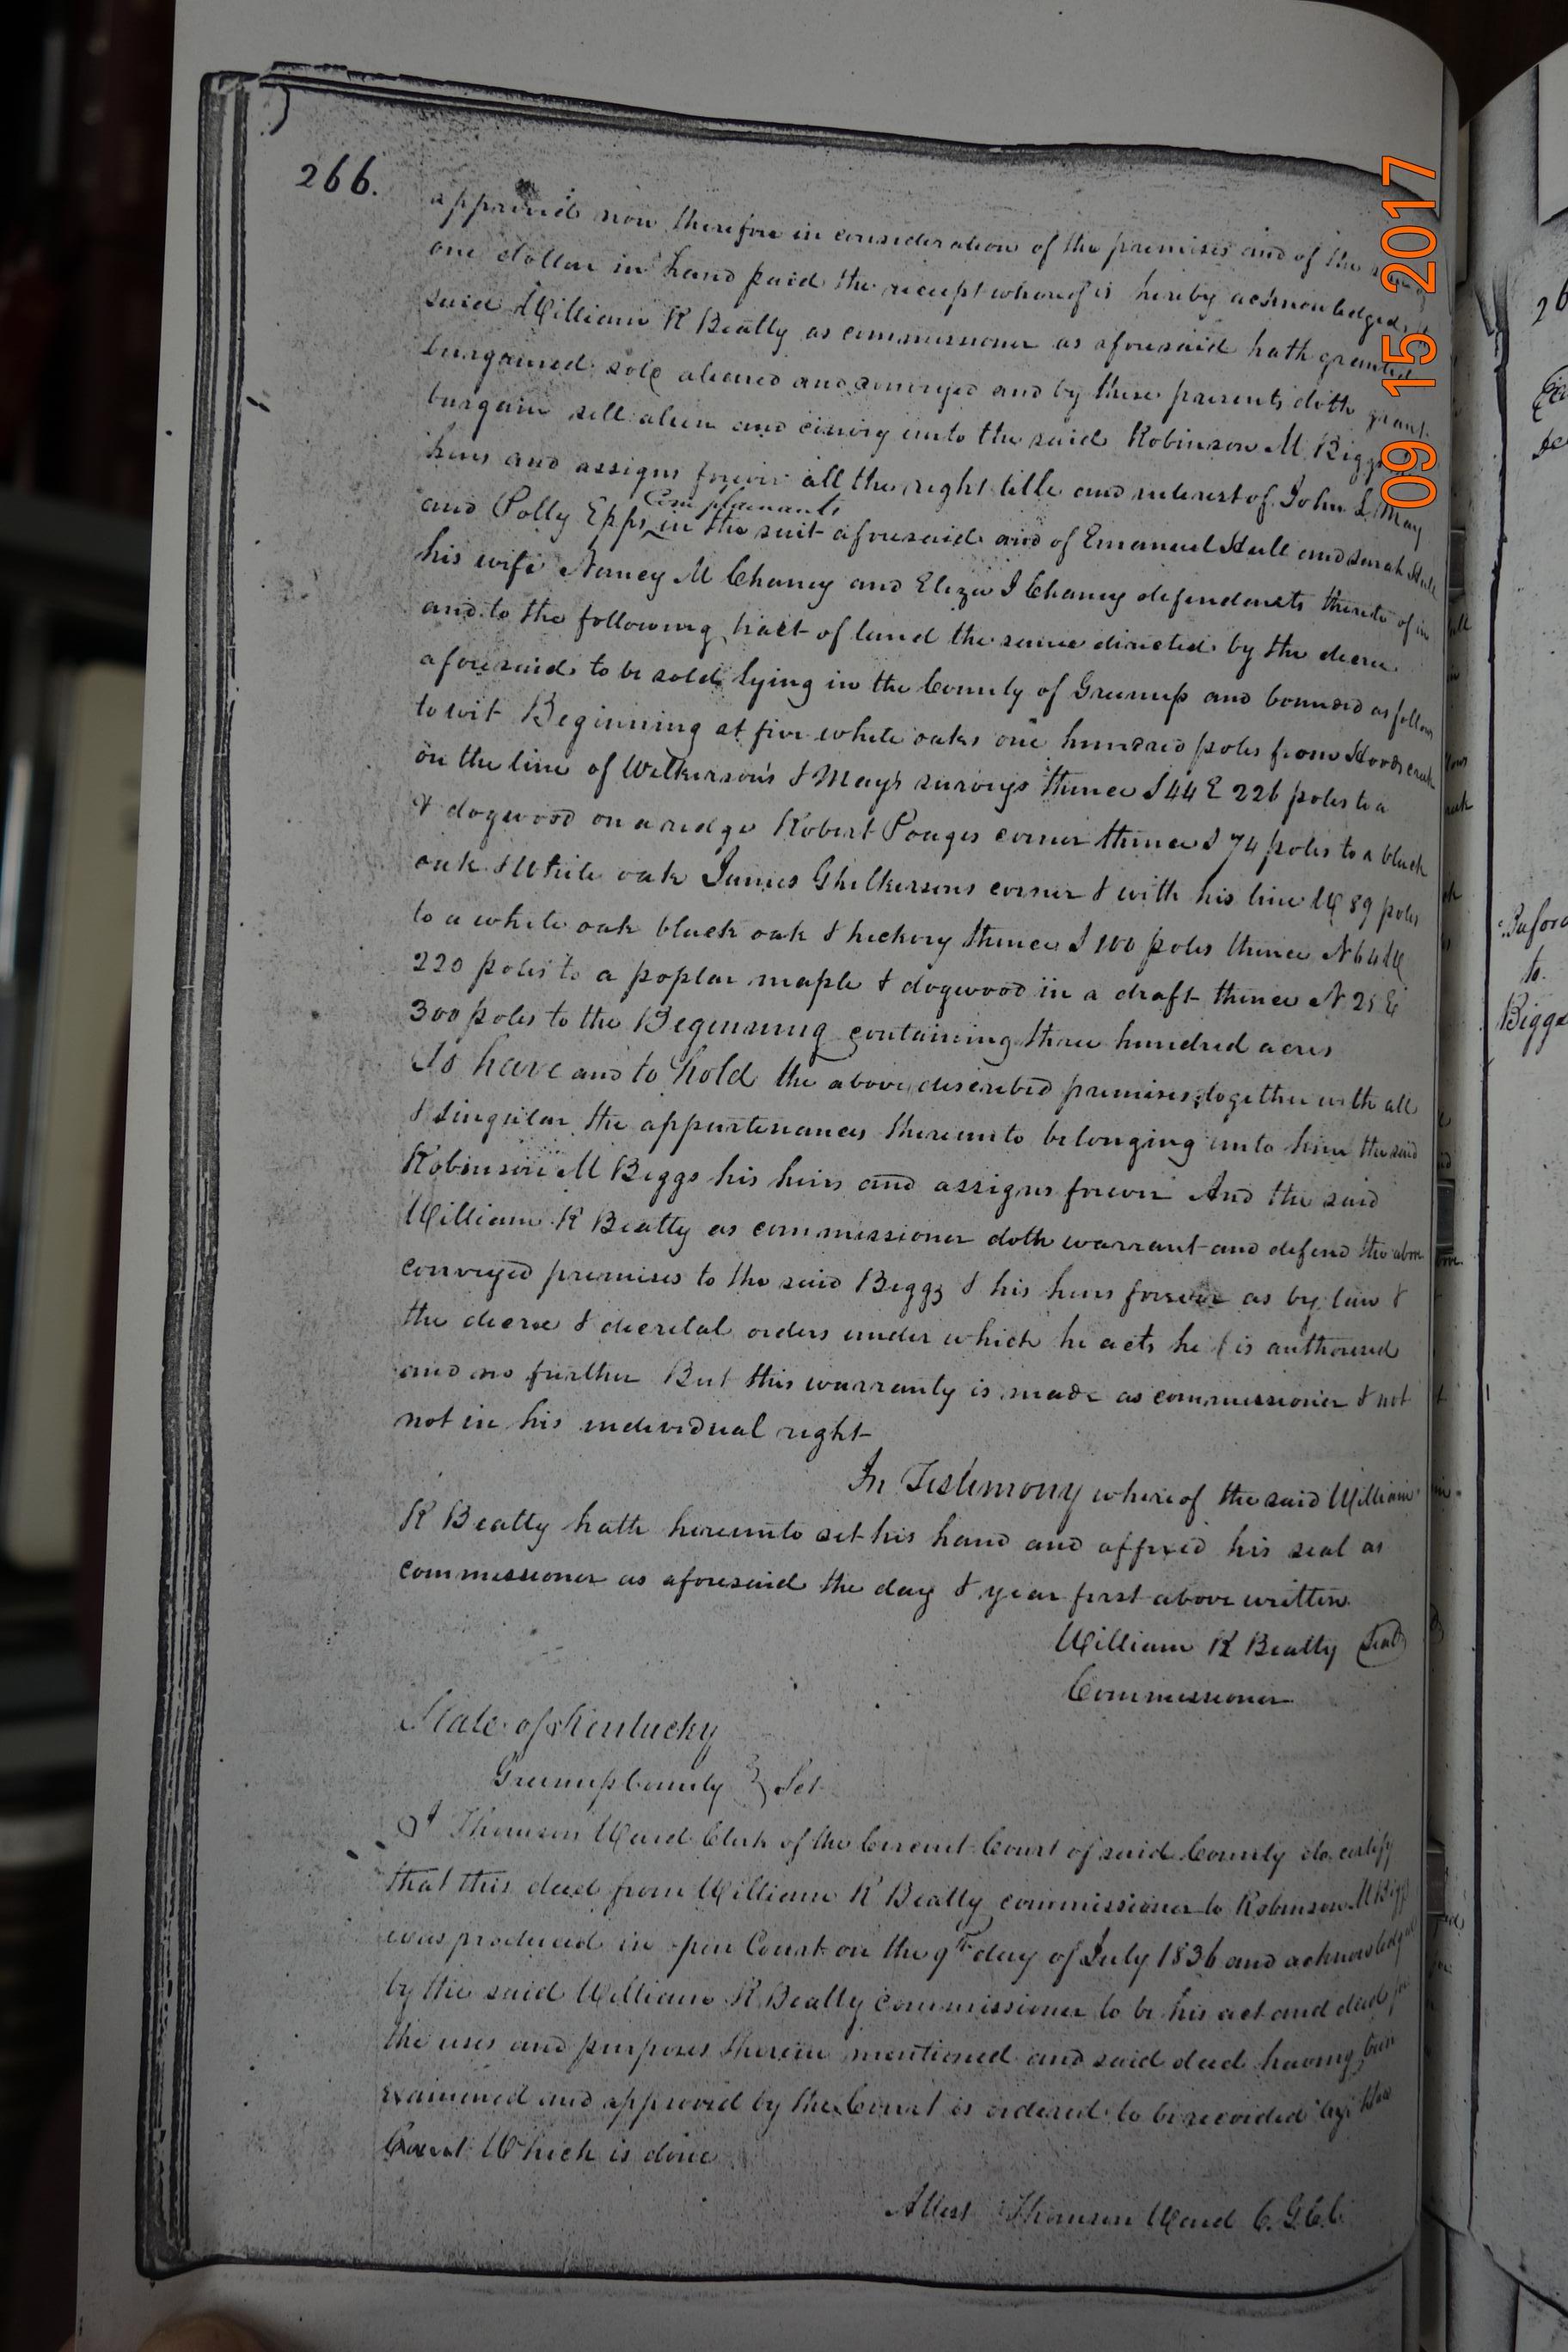 266.
approved now therefore in consideration of the premises and of the
one dollar in hand paid the receipt whereof is hereby acknowledged
said William R Beatty as commissioner as aforesaid hath granted
bargained sold aliened and conveyed and by these presents doth grant
bargain sell alien and convey unto the said Robinson M Biggs
heirs and assigns forever all the right title and interest of John L May
Complainants
and Polly Epps in the suit aforesaid and of Emanuel Hull and Sarah Hull
his wife Nancy M Chaney and Eliza J Chaney defendants thereto of in
and to the following tract of land the same directed by the decree
aforesaid to be sold lying in the County of Greenup and bounded as follows
to wit Beginning at five white oaks one hundred poles from Hoods creek
on the line of Wilkerson's & May's surveys thence S 44 E 226 poles to a
& dogwood on a ridge Robert Pouges corner thence S 74 poles to a black
oak & White oak James Ghilkersons corner & with his line W 89 poles
to a white oak black oak & hickory thence S 100 poles thence N 64 W
220 poles to a poplar maple & dogwood in a draft thence N 25 E
300 poles to the Beginning containing three hundred acres
To have and to hold the above described premises together with all
& singular the appurtenances thereunto belonging unto him the said
Robinson M Biggs his heirs and assigns forever And the said
William R Beatty as commissioner doth warrant and defend the above
conveyed premises to the said Biggs & his heirs forever as by law &
the decree & decretal orders under which he acts he is authorised
and no further But this warranty is made as commissioner & not
not in his individual right
In Testimony whereof the said William
R Beatty hath hereunto set his hand and affixed his seal as
commissioner as aforesaid the day & year first above written
William R Beatty Seal
Commissioner
State of Kentucky
Greenup County } Sct
I Thomson Ward Clerk of the Circuit Court of said County do certify
that this deed from William R Beatty commissioner to Robinson M Biggs
was produced in open Court on the 9th day of July 1836 and acknowledged
by the said William R Beatty commissioner to be his act and deed for
the uses and purposes therein mentioned and said deed having been
examined and approved by the Court is ordered to be recorded by the
Court Which is done
Attest Thomson Ward C.G.C.C.
09 15 2017
Buford
to
Biggs